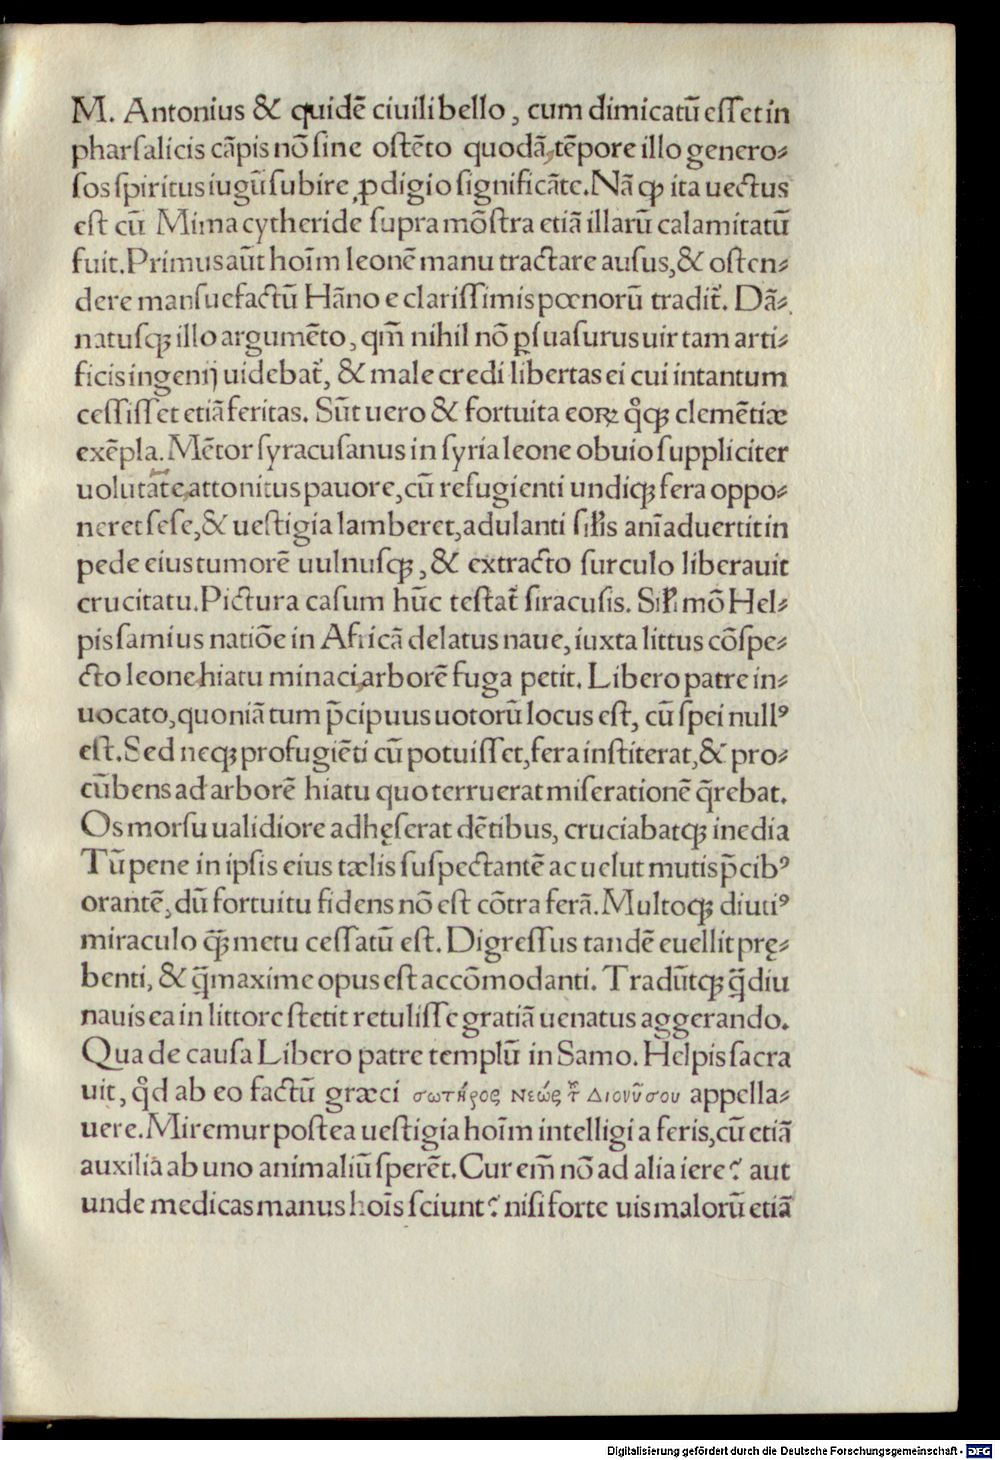 M. Antonius & quidē ciuili bello, cum dimicatū eſſet in
pharſalicis cāpis nō ſine oſtēto quodā, tēpore illo genero⸗
ſos ſpiritus iugū ſubire ꝓdigio ſignificāte. Nā ꝙ ita uectus
eſt cū Mima cytheride ſupra mōſtra etiā illarū calamitatū
fuit. Primus aūt hoīm leonē manu tractare auſus, & oſten⸗
dere manſuefactū Hāno e clariſſimis pœnorū tradit᷑. Dā⸗
natuſqꝫ illo argumēto, qm̄ nihil nō ꝑſuaſurus uir tam arti⸗
ficis ingenij uidebat᷑, & male credi libertas ei cui intantum
ceſſiſſet etiā feritas. Sūt uero & fortuita eoꝝ qͦqꝫ clemētiæ
exēpla. Mētor ſyracuſanus in ſyria leone obuio ſuppliciter
uolutāte, attonitus pauore, cū refugienti undiqꝫ fera oppo⸗
neret ſeſe, & ueſtigia lamberet, adulanti ſiꝉis aniāduertit in
pede eius tumorē uulnuſqꝫ, & extracto ſurculo liberauit
crucitatu. Pictura caſum hūc teſtat᷑ ſiracuſis. Siꝉi mō Hel⸗
pis ſamius natiōe in Africā delatus naue, iuxta littus cōſpe⸗
cto leone hiatu minaci, arborē fuga petit. Libero patre in⸗
uocato, quoniā tum p̄cipuus uotorū locus eſt, cū ſpei nullꝰ
eſt. Sed neqꝫ profugiēti cū potuiſſet, fera inſtiterat, & pro⸗
cūbens ad arborē hiatu quo terruerat miſerationē q̄rebat.
Os morſu ualidiore adhęſerat dētibus, cruciabatqꝫ inedia
Tū pene in ipſis eius tælis ſuſpectantē ac uelut mutis p̄cibꝰ
orantē, dū fortuitu fidens nō eſt cōtra ferā. Multoqꝫ diutiꝰ
miraculo ꝙ̄ metu ceſſatū eſt. Digreſſus tandē euellit prę⸗
benti, & q̄maxime opus eſt accōmodanti. Tradūtqꝫ q̄diu
nauis ea in littore ſtetit retuliſſe gratiā uenatus aggerando.
Qua de cauſa Libero patre templū in Samo. Helpis ſacra
uit, qͦd ab eo factū græci σωτῆρος νεώς τ͂ Διονῦσου appella⸗
uere. Miremur poſtea ueſtigia hoīm intelligi a feris, cū etiā
auxilia ab uno animaliū ſperēt. Cur em̄ nō ad alia iere? aut
unde medicas manus hoīs ſciunt? niſi forte uis malorū etiā
Digitalisierung gefördert durch die Deutsche Forschungsgemeinschaft - DFG